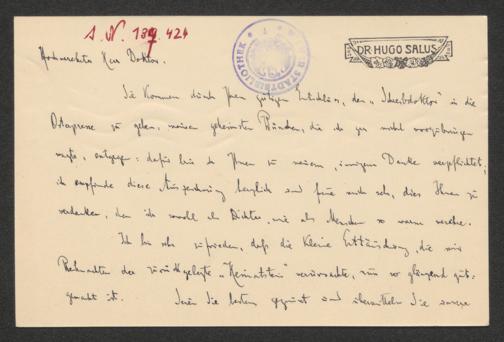 J. N. 189.424
WIENER STADTBIBLIOTHEK
DR HUGO SALUS
Hochverehrter Herr Doktor.
Sie kommen durch Ihren gütigen Entschluß, den „ in die
zu geben, meinen geheimsten Wünschen, die ich gar nicht vorzubringen
wagte, entgegen: dafür bin ich Ihnen zu neuem, innigem Danke verpflichtet,
ich empfinde diese Auszeichnung herzlich und freue mich sehr, dies Ihnen zu
verdanken, den ich sowohl als Dichter, wie als Menschen so warm verehre.
Ich bin sehr zufrieden, daß die kleine Enttäuschung, die mir
der zurückgelegte verursachte, nun so glänzend gut-
gemacht ist. Seien Sie bestens gegrüßt und übermitteln Sie unsere